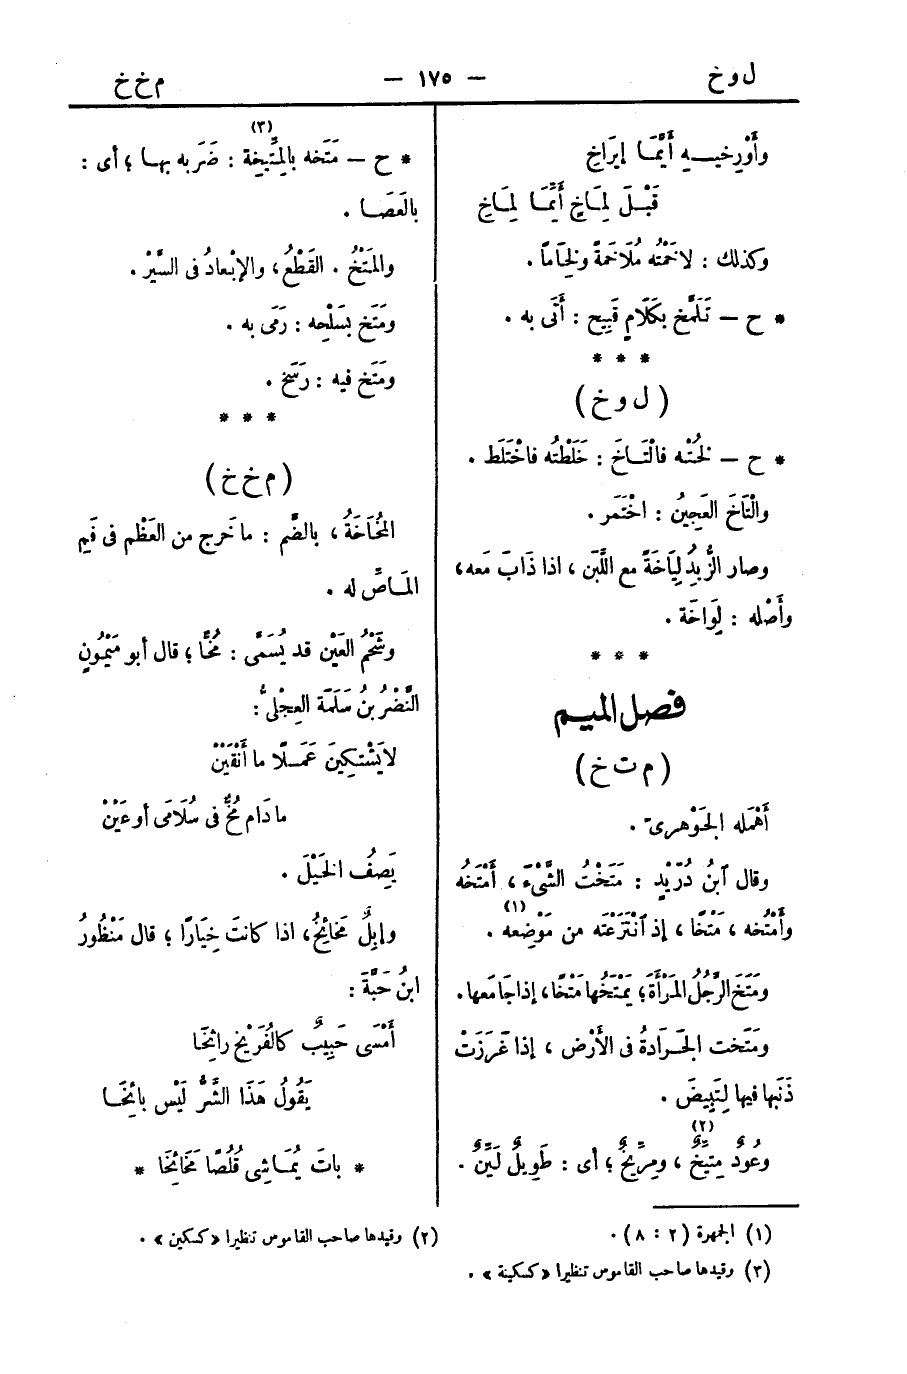 ل و خ
— ١٧٥ —
م خ خ
وأَوْرِخيـــه أَيَّمَــا إيرَاخِ
قَبْــلَ لِمَــاخٍ أَيِّمَــا لِمَــاخِ
وكذلك : لاخَمْتُه مُلَاخَمةً ولِخَاماً .
* ح — تَلَمَّخ بكَلَامٍ قَبِيح : أَتَى به .
* * *
( ل و خ )
* ح — لُخْتُـه فالْتَــاخَ : خَلَطْتُه فاخْتَلَط .
والْتَاخَ العَجِينُ : اخْتَمَر .
وصار الزُّبدُ لِيَاخَةً مع اللَّبَن ، اذا ذَابَ مَعه ،
وأَصْله : لِوَاخَة .
* * *
فصل الميــم
( م ت خ )
أَهْمَله الجَوْهرىّ .
وقال ٱبنُ دُرَيْدٍ : مَتَخْتُ الشَّىْءَ ، أَمْتَخه
وأَمْتُخه ، مَتْخًا ، إذ ٱنْتَزَعْتَه من مَوْضِعه (١) .
ومَتَخَ الرَّجُلُ المَرْأَةَ ؛ يَمْتَخُها مَتْخًا ، إذا جَامَعها .
ومَتَخت الجَــرَادةُ فى الأَرْض ، إذا غَرَزَتْ
ذَنَبها فيها لِتَبِيضَ .
وعُودٌ مِتِّيخٌ (٢) ، ومِرِّيخٌ ؛ أى : طَوِيلٌ لَيِّنٌ .
* ح — مَتَخه بالمِتِّيخة (٣) : ضَرَبه بهــا ؛ أى :
بالعَصَــا .
والمَتْخُ . القَطْعُ ، والإبْعادُ فى السَّيْر .
ومَتَخ بسَلْحِه : رَمَى به .
ومَتَخ فيه : رَسَخ .
* * *
( م خ خ )
المُخَاخَةُ ، بالضَّم : ما خَرج من العَظْم فى فَمِ
المَــاصِّ له .
وشَحْمُ العَيْن قد يُسَمَّى : مُخًّا ؛ قال أبو مَيْمُونٍ
النَّضْرُ بنُ سَلَمَة العِجْلىُّ :
لا يَشْتـكِينَ عَمَــلًا ما أَنْقَيْنْ
ما دَام مُخٌّ فى سُلَامَى أو عَيْنْ
يَصِفُ الخَيْلَ .
وإبِلٌ مَخائِخُ ، اذا كانتَ خِيَارًا ؛ قال مَنْظُورُ
ابنُ حَبَّةَ :
أَمْسَى حَبِيبٌ كالفُرَيْخِ رائخَا
يَقُولُ هَذَا الشَّرُّ لَيْس بائخَــا
* باتَ يُمَـاشِى قُلُصًا مَخَائخَا *
(١) الجمهرة (٢ : ٨) .
(٢) وقيدها صاحب القاموس تنظيرا «كسكين» .
(٣) وقيدها صاحب القاموس تنظيرا «كسكينة» .